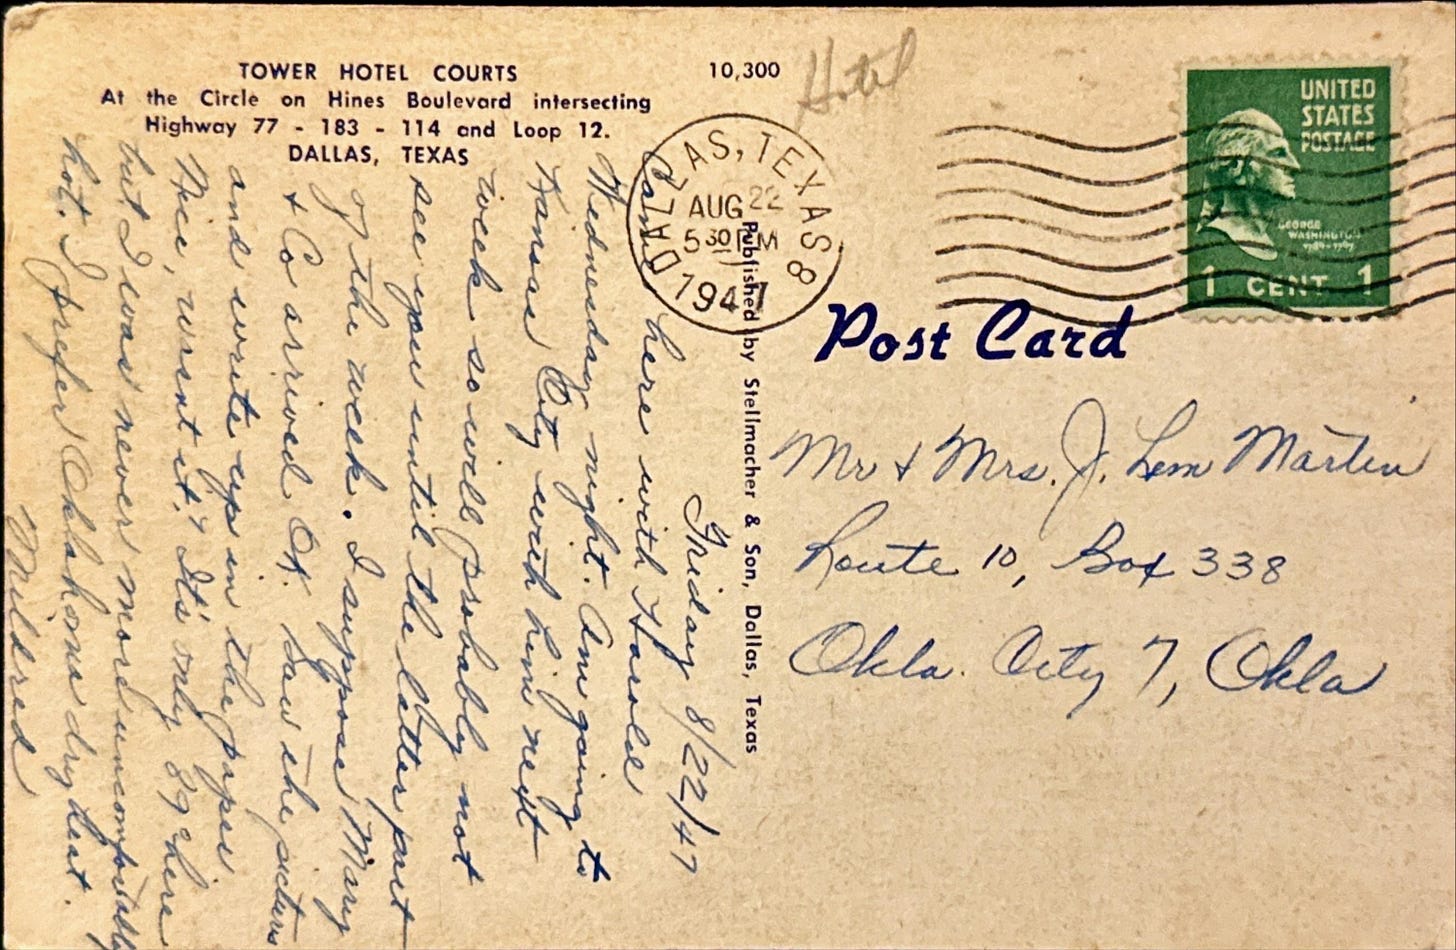 TOWER HOTEL COURTS
At the Circle on Hines Boulevard intersecting
Highway 77 - 183 - 114 and Loop 12.
DALLAS, TEXAS
10,300
Hotel
DALLAS, TEXAS 8
AUG 22
5 30 PM
1947
UNITED
STATES
POSTAGE
GEORGE
WASHINGTON
1789-1797
1 CENT 1
Post Card
Published by Stellmacher & Son, Dallas, Texas
Friday 8/22/47
Came here with Harold
Wednesday night. Am going to
Kansas City with him next
week so will probably not
see you until the latter part
of the week. I suppose Mary
& Co arrived OK. Saw the picture
and write up in the paper
Nice, wasnt it? It's only 89° here
but I was never more uncomfortably
hot. I prefer Oklahoma dry heat.
Mildred
Mr & Mrs. J. Lem Martin
Route 10, Box 338
Okla. City 7, Okla